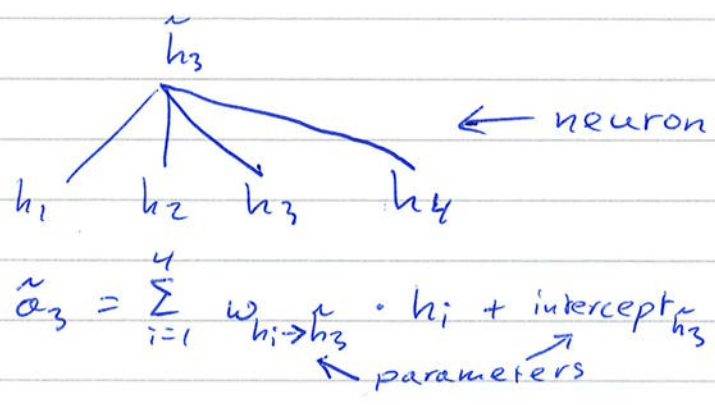 h̃₃
← neuron
h₁ h₂ h₃ h₄
ã₃ = Σ_{i=1}^{4} w_{hᵢ→h̃₃} · hᵢ + intercept_{h̃₃}
parameters